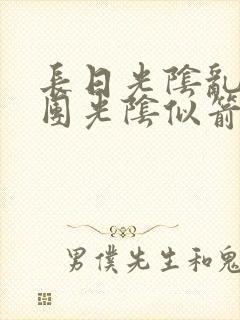 長日光陰亂
園光陰似箭
男僕先生和鬼